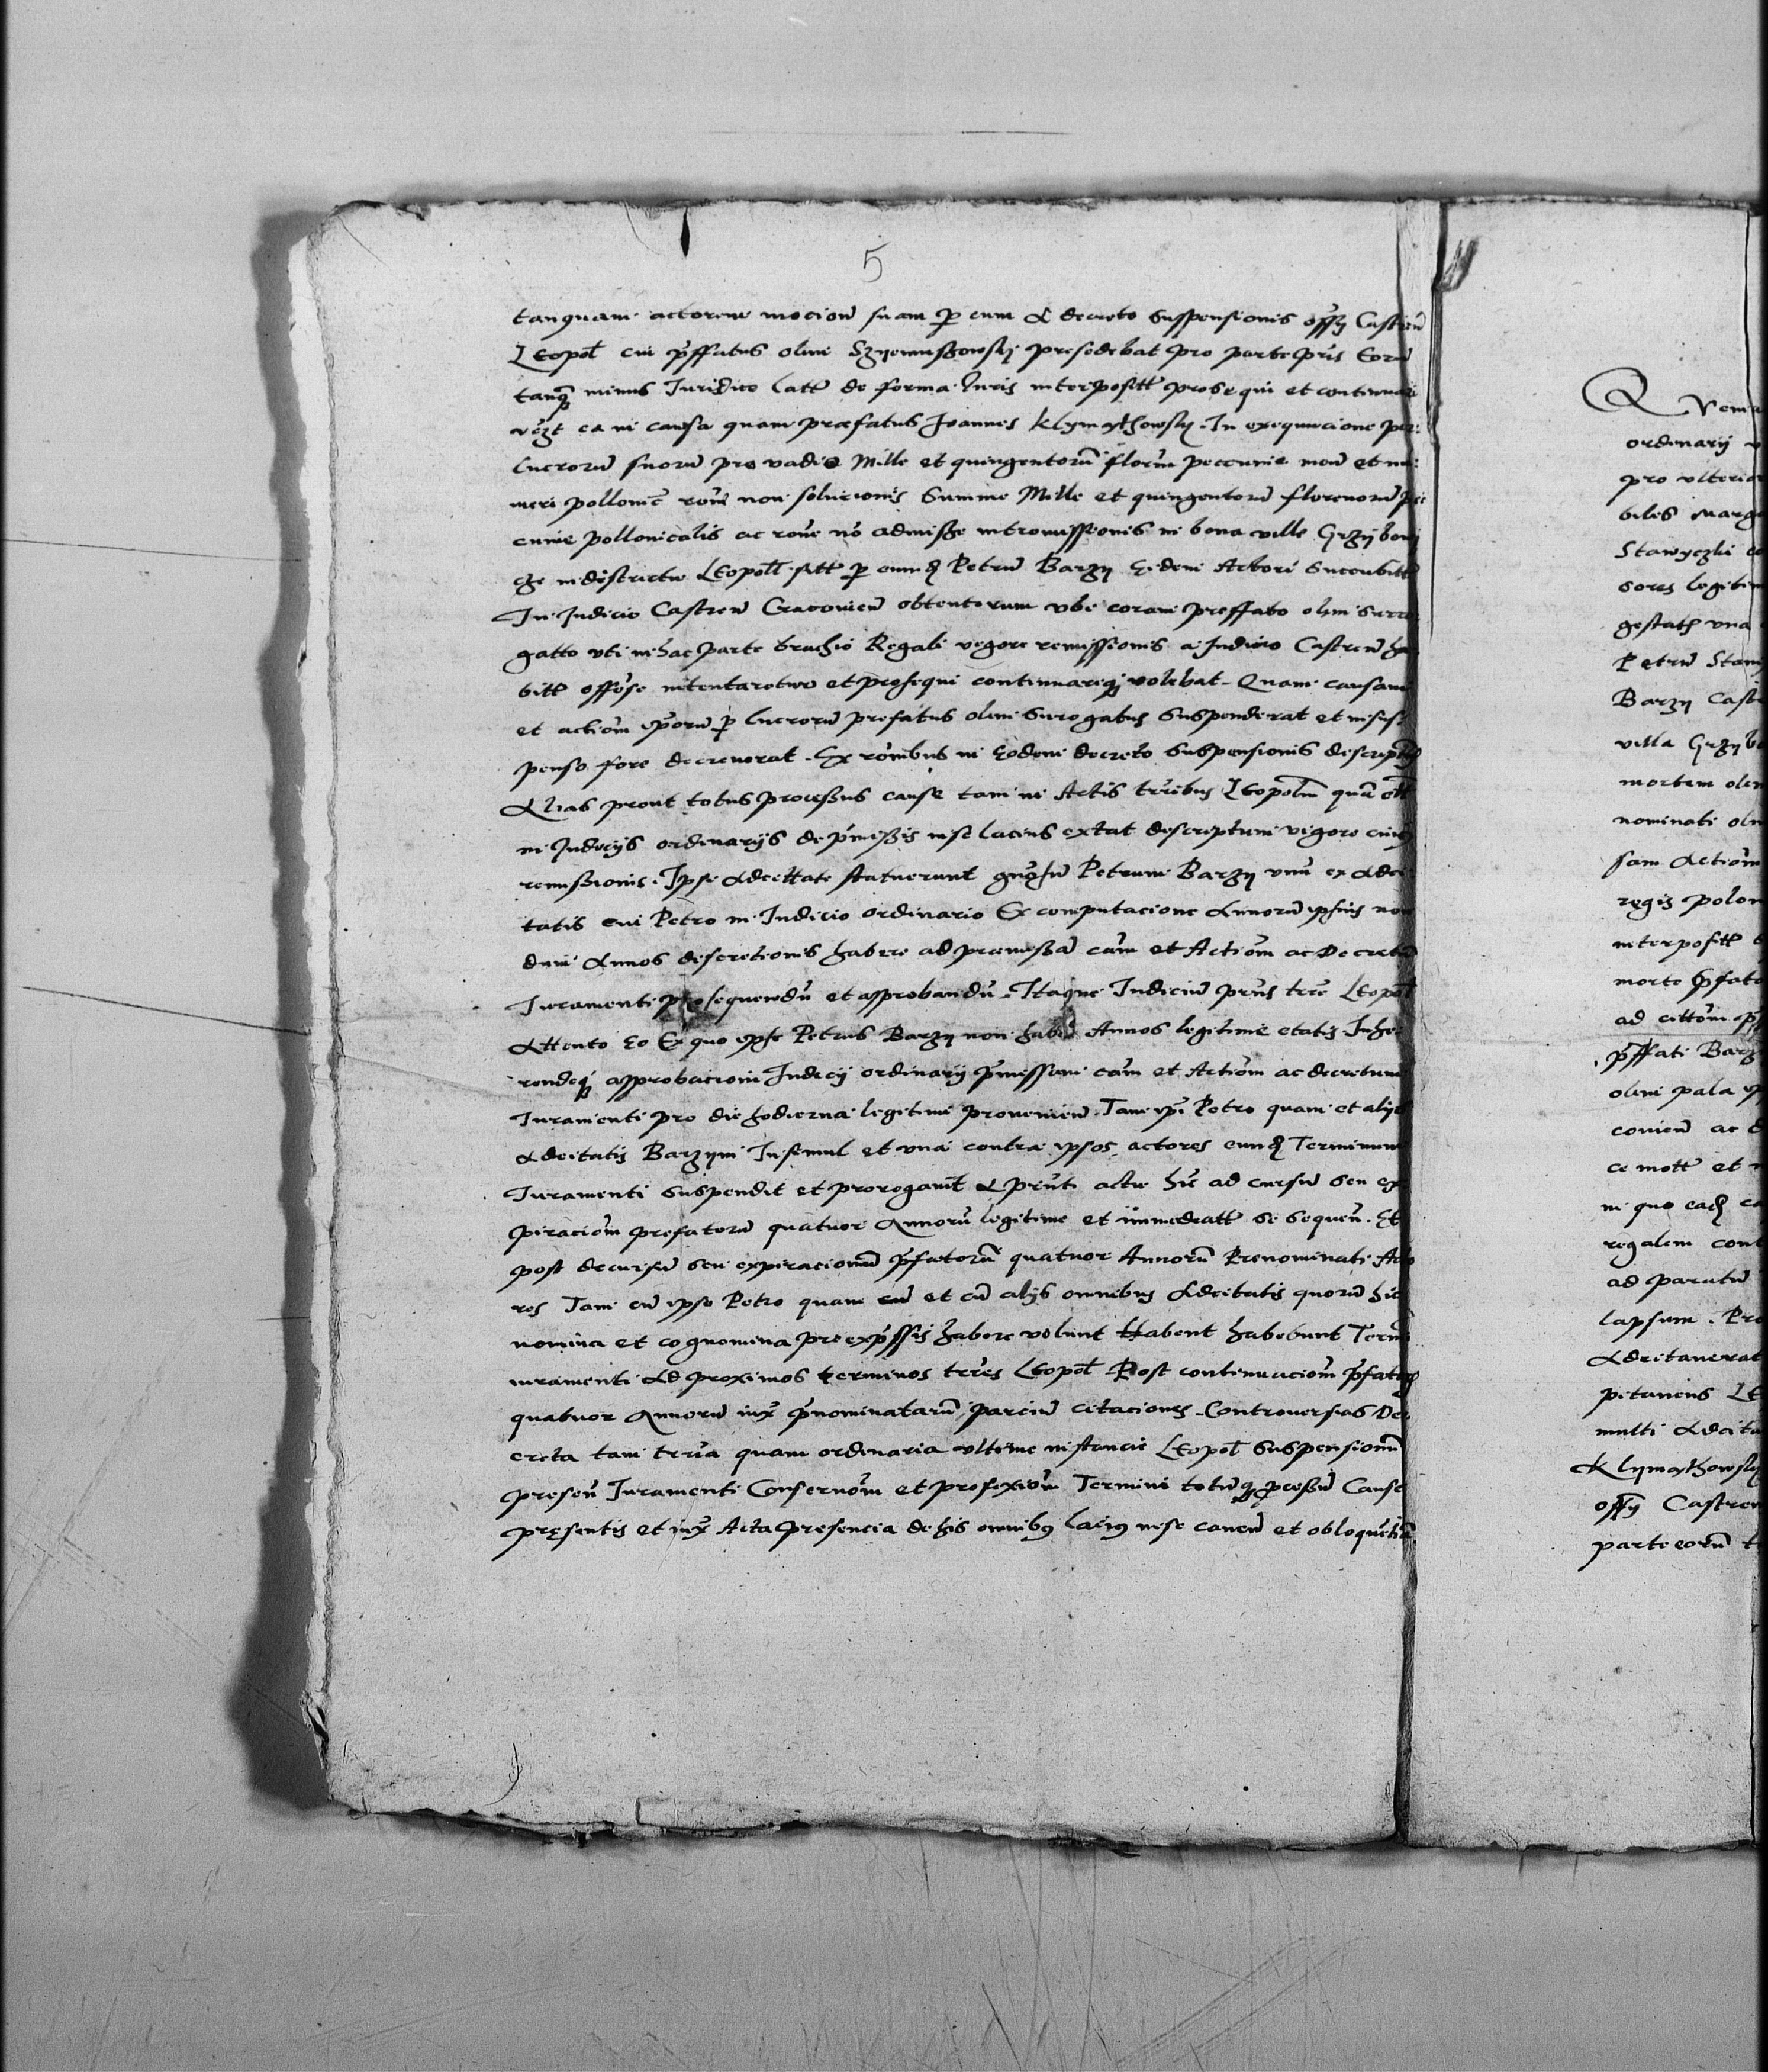 5
tanquam actorem mocioni suam p eum A decreto Suspensionis offy Castren
Leopol cui pffatus olim Szyemuschowskj presedebat pro parte pris Eoru
tanqp minus Juridice latt de forma Iuris interpositt prosequi et continuare
ea in causa quam præfatus Joannes Klymaythowsky In exequucione per
lucroru suoru pro vadio Mille et quingentoru floru peccunie mon et nu
meri pollonic rone non solucionis Summe Mille et quingentoru florenoru pec
cunie pollonicalis ac rone no admisse intromissionis in bona ville Grzybow
cze in districtu Leopol sitt p eund Petru Barzy Eidem Actori Succubitt
In Judicio Castren Cracovien obtentorum vbi coram preffato olim Surro
gatto vti in hac parte brachio Regali vegore remissionis a Judicio Castren ha
bitt offose intentaretur et prosequi continuareq volebat. Quam causam
et actiom p lucroru prefatus olim Surogatus Suspenderat et in sus
penso fore decreverat. Ex romibus in Eodem decreto Suspensionis descript
Alias prout totus processus cause tam in Actis trribus Leopolm qua ett
in Judicijs ordinarijs de pmissis in se lacius extat descriptum vigore cuius
remissionis. Ipse Adcittate statuerunt Petrum Barzy vnu ex Adci
tatis cui Petro in Judicio ordinario Ex computacione Annoru ipsius non
dum Annos descretionis habere ad premissa cam et Actiom ac Decretu
Juramenti prosequendu et approbandu. Itaque Judiciu prns trre Leopol
Attento Eo Ex quo ipse Petrus Barzy non habet Annos legitime etatis Inhe
rendoq approbacioni Judicij ordinarij pmissam cam et Actiom ac decretum
Juramenti pro die hodierna legitime provenien. Tam ipi Petro quam et alijs
Adcitatis Barzym Insimul et vna contra ipsos actores eund Terminum
Juramenti Suspendit et prorogavit A prnti actu hic ad cursu seu ex
piraciom prefatoru quatuor Annoru legitime et immediatt se sequen. Et
post decursu seu expiracionem pfatoru quatuor Annoru Prenominati Acto
res Tam cu ipso Petro quam cu et cu alijs omnibus Adcitatis quoru hic
nomina et cognomina pro expssis habere volunt Habent habebunt Term
iuramenti Ad proximos terminos trres Leopol Post continuaciom pfator
quatuor Annoru iux pnominataru parciu citaciones Controversias De
creta tam trria quam ordinaria vltime instancie Leopol Suspensionu
presen Juramenti Conservom et profixiom Termini totuq pcessu Cause
presentis et iux Acta presencia de his omnibus lacius in se canen et obloquetia
Quem
ordinarij
pro vlterior
bilis Marg
Stawyczki
sores legitim
gestath vna
Petru Stan
Barzy Castr
villa Grzybo
mortem olim
nominati olim
sam Actiom
regis polon
interpositt
morte pfato
ad cittom
pffati Barz
olim pala
covien ac
ce mott et
in quo ead
regalem cont
ad paratu
lapsum. Pro
Adcitaverat
pitaneus Le
multi Adcita
Klymaythowsky
offy Castren
parte eoru